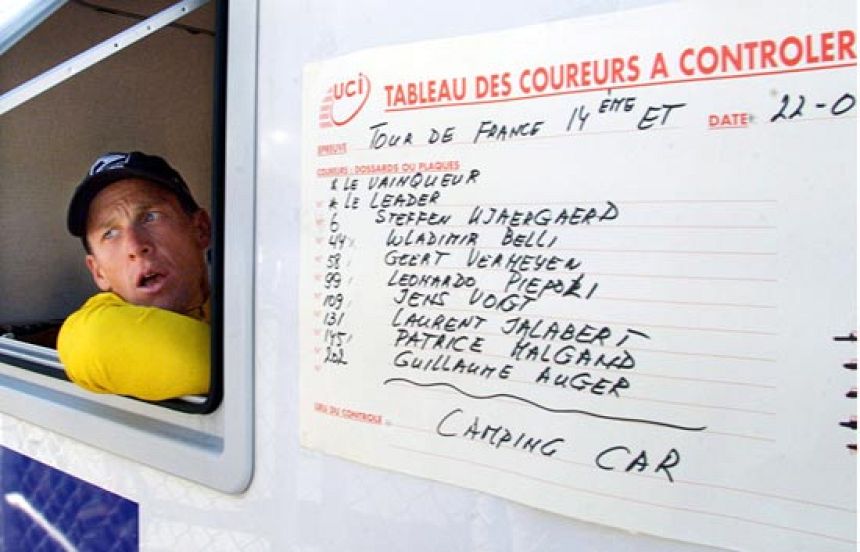 uci
TABLEAU DES COUREURS A CONTROLER
EPREUVE TOUR DE FRANCE 14 ÈME ET DATE 22-0
COUREURS : DOSSARDS OU PLAQUES
* LE VAINQUEUR
* LE LEADER
6 STEFFEN KJAERGAERD
44 WLADIMIR BELLI
58 GEERT VERHEYEN
99 LEONARDO PIEPOLI
109 JENS VOIGT
131 LAURENT JALABERT
145 PATRICE HALGAND
202 GUILLAUME AUGER
LIEU DU CONTROLE CAMPING CAR